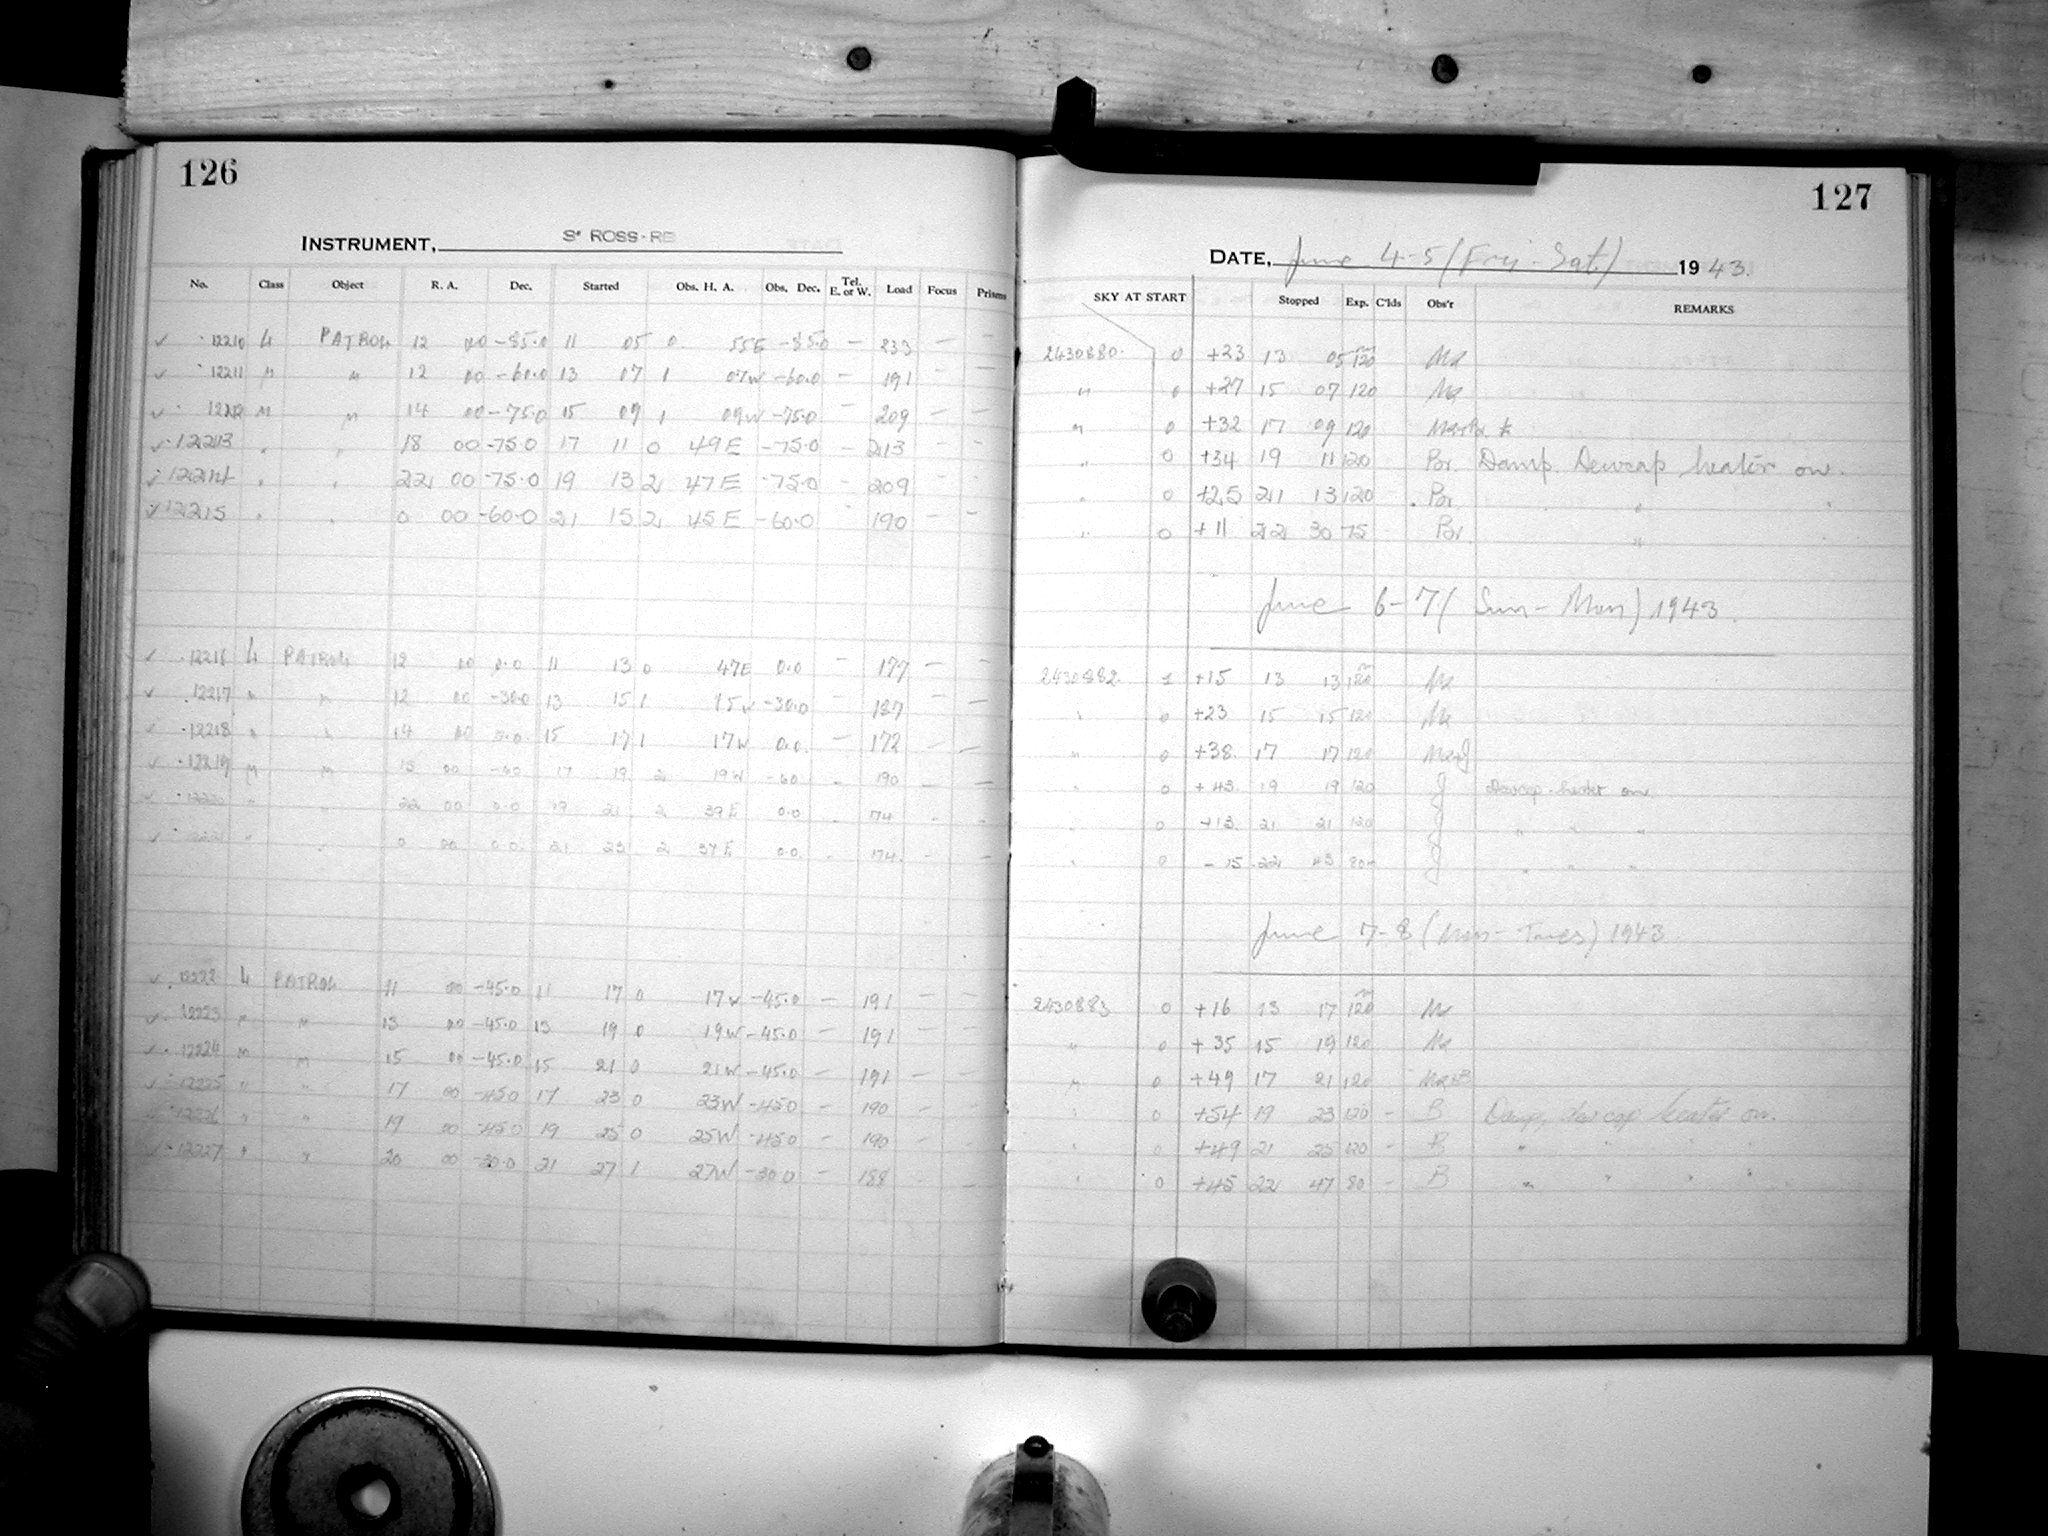 126
INSTRUMENT, 3" ROSS-RB
No. Class Object R. A. Dec. Started Obs. H. A. Obs. Dec. Tel. E. or W. Load Focus Prisms
12210 L PATROL 12 00 -85.0 11 05 0 55E -85.0 — 233 — —
12211 " " 12 00 -60.0 13 07 1 07W -60.0 — 191 — —
12212 " " 14 00 -75.0 15 09 1 09W -75.0 — 209 — —
12213 " " 18 00 -75.0 17 11 0 49E -75.0 — 213 — —
12214 " " 22 00 -75.0 19 13 2 47E -75.0 — 209 — —
12215 " " 0 00 -60.0 21 15 2 45E -60.0 190 — —
12216 L PATROL 12 00 0.0 11 13 0 47E 0.0 — 177 — —
12217 " " 12 00 -30.0 13 15 1 15W -30.0 — 187 — —
12218 " " 14 00 0.0 15 17 1 17W 0.0 — 172 — —
12219 " " 15 00 -60 17 19 2 19W -60 - 190 — —
12220 " " 22 00 0.0 19 21 2 39E 0.0 - 174 - -
12221 " " 0 00 0.0 21 23 2 37E 0.0 - 174 - —
12222 L PATROL 11 00 -45.0 11 17 0 17W -45.0 — 191 — —
12223 " " 13 00 -45.0 13 19 0 19W -45.0 — 191 — —
12224 " " 15 00 -45.0 15 21 0 21W -45.0 — 191 — —
12225 " " 17 00 -45.0 17 23 0 23W -45.0 — 190 — —
12226 " " 19 00 -45.0 19 25 0 25W -45.0 — 190 — —
12227 " " 20 00 -30.0 21 27 1 27W -30.0 — 188 — —
127
DATE, June 4-5 (Fri-Sat.) 1943.
SKY AT START Stopped Exp. C'lds Obs'r REMARKS
2430880. 0 +23 13 05 120 Ma
" 0 +27 15 07 120 Ma
" 0 +32 17 09 120
" 0 +34 19 11 120 Br. Damp. Dewcap heater on.
" 0 +25 21 13 120 Br. " " "
" 0 +11 22 30 75 Br. "
June 6-7 (Sun-Mon) 1943.
2430882. 1 +15 13 13 120 Ma
" 0 +23 15 15 120 Ma
" 0 +38. 17 17 120
" 0 +43. 19 19 120 J Dewcap heater on.
" 0 +13. 21 21 120 J " " "
" 0 -15 22 43 80 J " " "
June 7-8 (Mon-Tues) 1943
2430883 0 +16 13 17 120 Ma
" 0 +35 15 19 120 Ma
" 0 +49 17 21 120
" 0 +54 19 23 120 - B Damp, dewcap heater on.
" 0 +49 21 25 120 - B " " " "
" 0 +45 22 47 80 - B " " " "